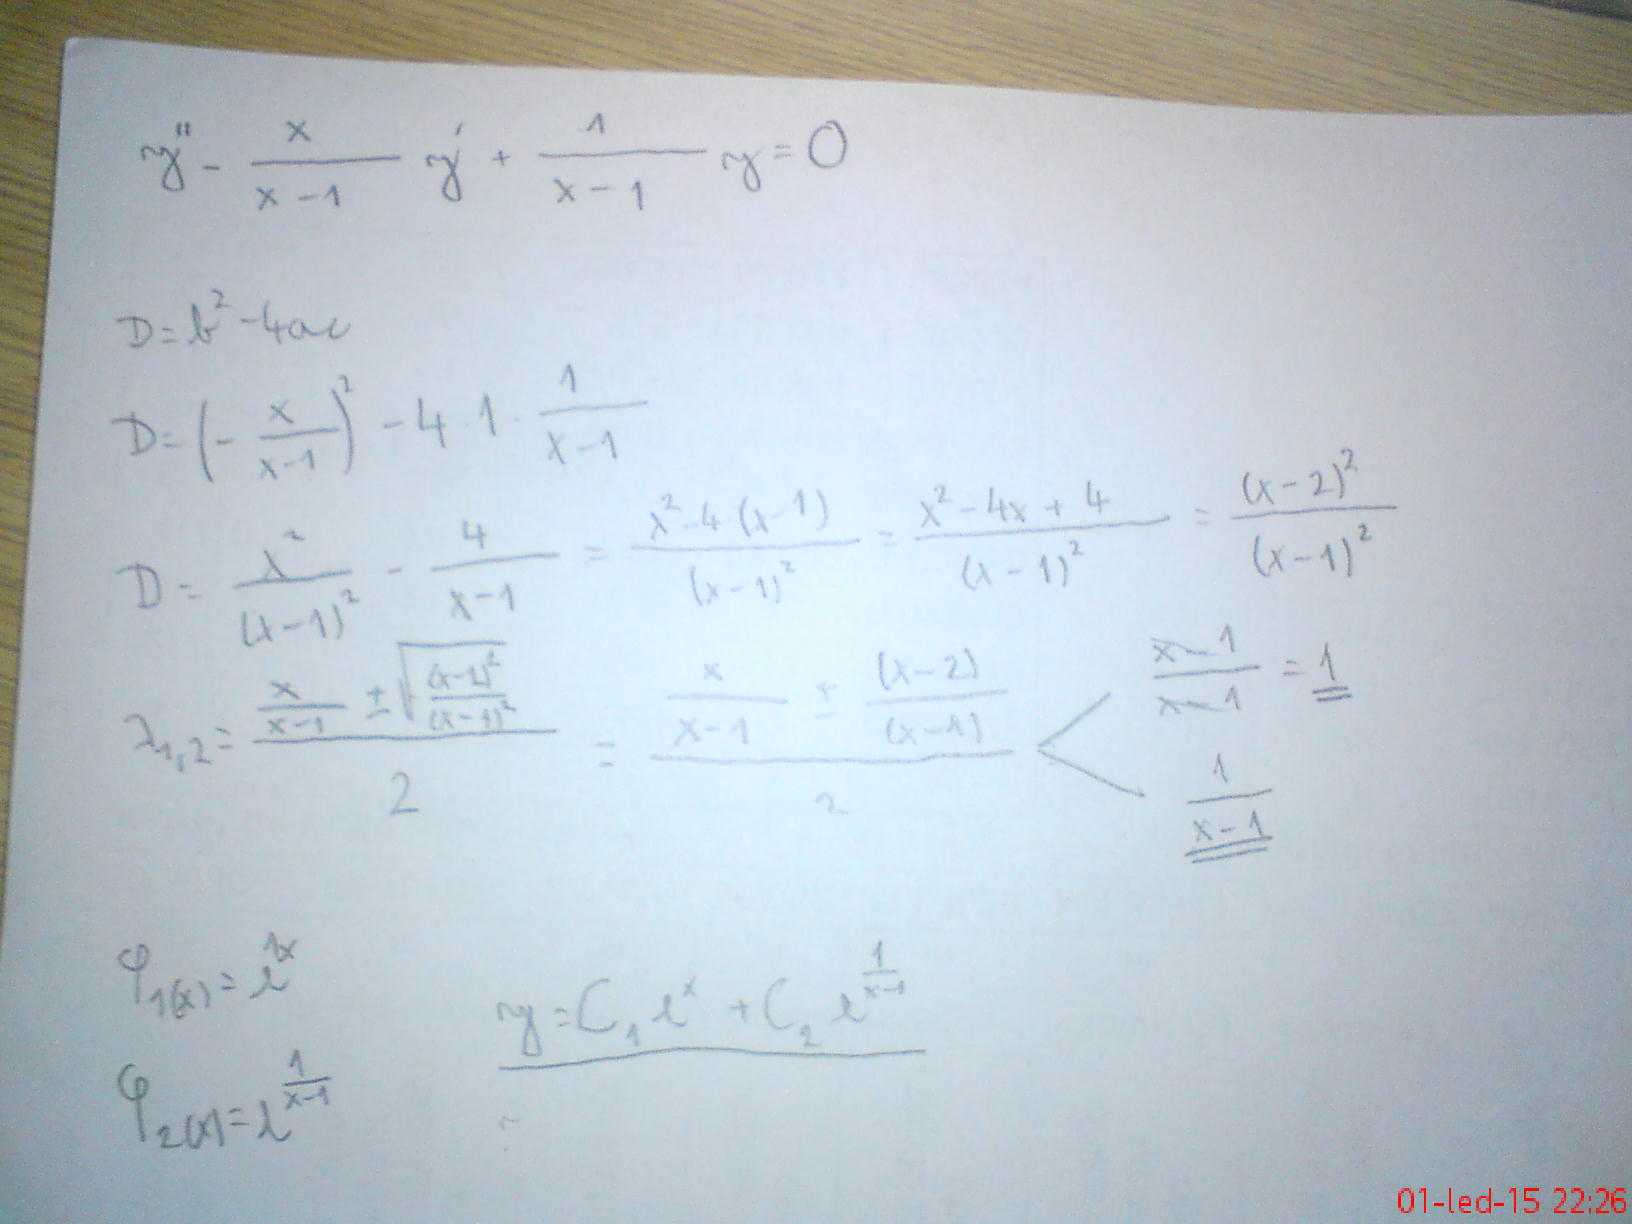 y'' - x/(x-1) y' + 1/(x-1) y = 0
D = b² - 4ac
D = (- x/(x-1))² - 4·1· 1/(x-1)
D = x²/(x-1)² - 4/(x-1) = (x² - 4·(x-1))/(x-1)² = (x² - 4x + 4)/(x-1)² = (x-2)²/(x-1)²
λ₁,₂ = (x/(x-1) ± √((x-2)²/(x-1)²))/2 = (x/(x-1) ± (x-2)/(x-1))/2
(x-1)/(x-1) = 1
1/(x-1)
φ₁(x) = e^(1x)
y = C₁ e^x + C₂ e^(1/(x-1))
φ₂(x) = e^(1/(x-1))
01-led-15 22:26